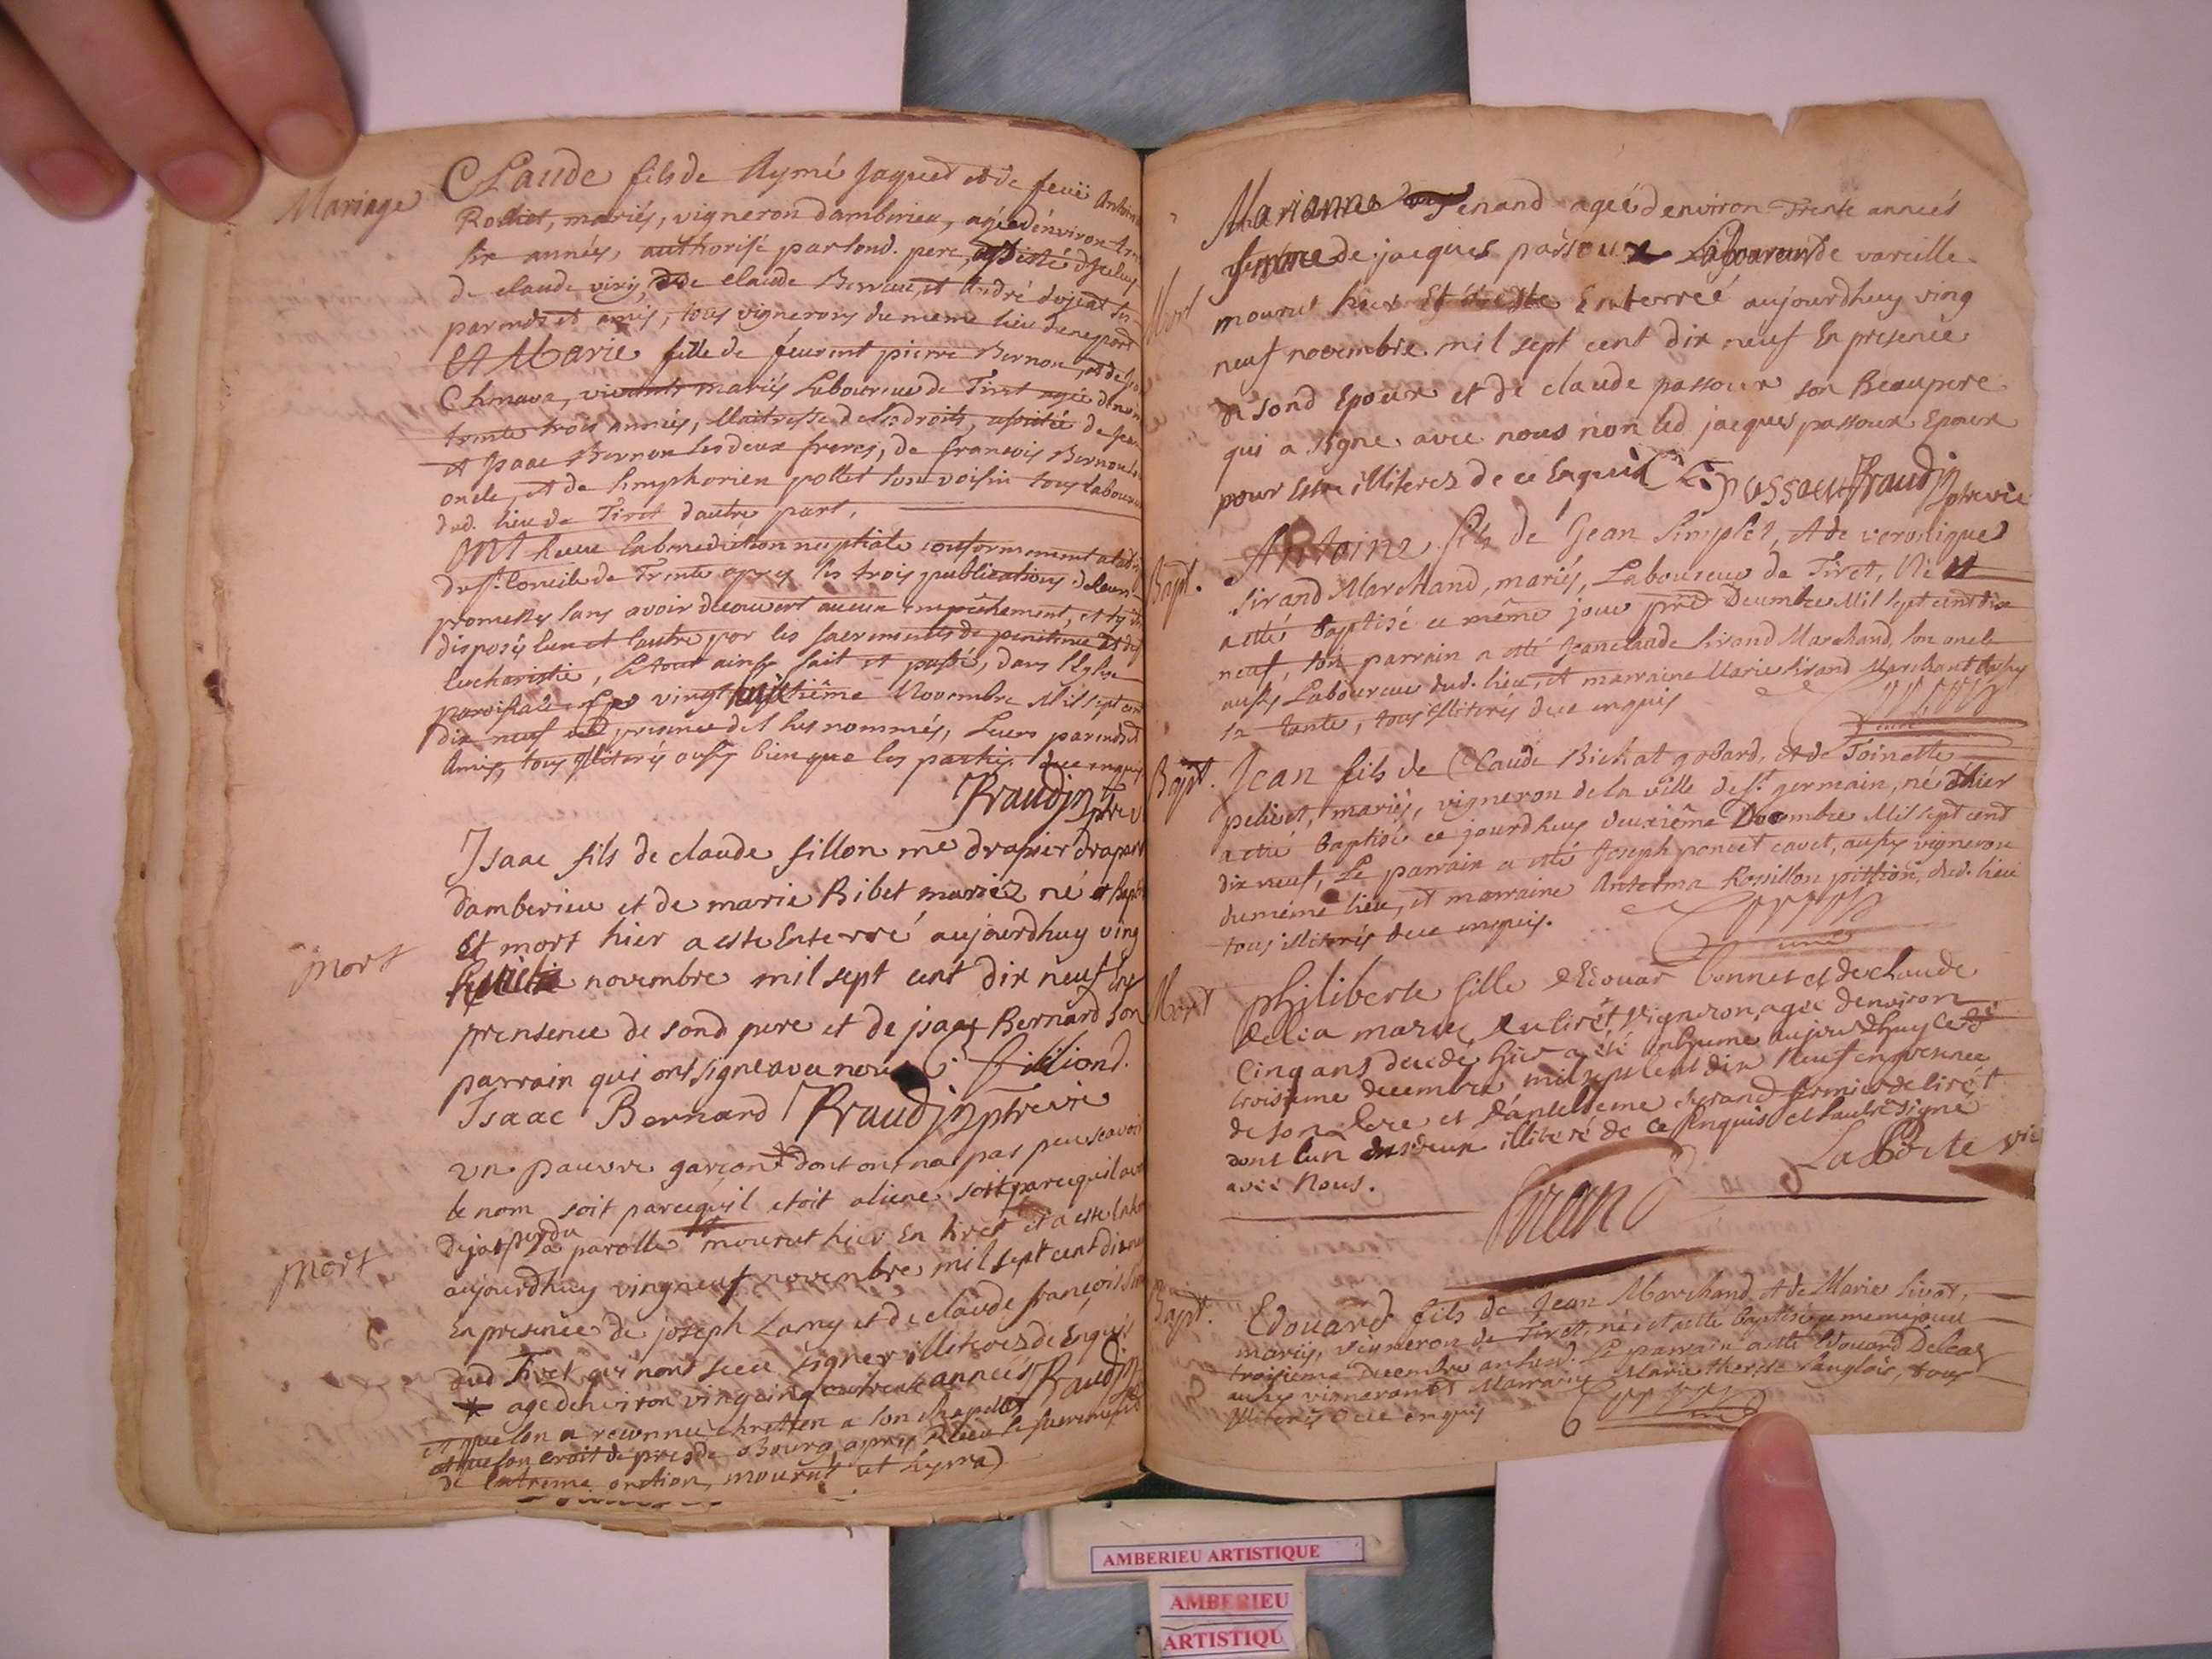 Mariage
Claude fils de Aymé Jaquet et de feuë Antoine
Rochet, mariés, vigneron damberieu, agé denviron
six années, authorisé par sond. pere, assisté dyceluy
de claude viry, de claude Berreue, et André dujeat
parends et amis, tous vignerons du meme lieu dune part
Et Marie fille de feurent pierre Bernou, et de
Chmava, vivants mariés Laboureue de Tiret agée denv
trente trois années, Maitresse de ses droits, assistée de
et Isaac Bernou ses deux freres, de francois Bernou
oncle, et de Simphorien pollet son voisin tous labour
dud. lieu de Tiret dautre part,
Ont heue la benediction nuptiale conformement
du st. Concile de Trente apres les trois publications de leur
promesses sans avoir decouvert aucun empêchement, et
disposés lun et lautre por les sacrements de penitence et de
Leucharistie, Le tout ainsy fait et passé, dans l'Eglise
paroissiale ce vingt Novembre Mil sept cent
dix neuf presence des sus nommés, Leurs parends et
Amis, tous illiterés aussy bien que les parties de ce enquis
Praudin ptre
mort
Isaac fils de claude fillon me drapier drapant
damberieu et de marie Ribet mariez né et Bapt
Et mort hier a este Enterré aujourdhuy ving
novembre mil sept cent dix neuf En
prensence de sond pere et de jsaac Bernard son
parrain qui ont signe avec nous C: filliond.
Isaac Bernard Praudin ptre vire
mort
un pauvre garçon * dont on na pas peu scavoir
le nom soit parcequil etoit aliene soit parcequil av
deja perdu la parolle mourut hier En tiret et a este
aujourdhuy vingneuf novembre mil sept cent dix ne
En presence de joseph Lamy et de claude françois
dud Tiret qui nont sceu signer illiterez de Enquis
* age denviron vingcinq années Praudin
et que lon a reconnu chretien a son chapelet
et que lon croit de pres de Bourg, apres
de lextreme onction, mourut ut supra)
Mort
Marianne Tenand ageé denviron Trente anneés
femme de jacques passoux Laboureur de vareille
mourut hier Et Este Enterreé aujourdhuy ving
neuf novembre mil sept cent dix neuf En presence
de sond Epoux et de claude passoux son Beaupere
qui a signe avec nous non led jacques passoux Epoux
pour Estre illiterez de ce Enquis C: passoux Praudin
ptre vire
Bapt.
Antoine fils de Jean Simplet, et de veronique
Sirand Marchand, mariés, Laboureur de Tiret, Né et
a etté baptisé ce même jour pre Decembre Mil sept cent dix
neuf, son parrain a esté Jeanclaude Sirand Marchand, son oncle
aussy Laboureue dud. lieu, et marraine Marie Sirand Marchant aussy
sa tante, tous illiterés de ce enquis
curé
Bapt.
Jean fils de Claude Bichat gobard, et de Toinette
pelicot, mariés, vigneron de la ville de st. germain, né dhier
a etté Baptisé ce jourdhuy deuxième Decembre Mil sept cent
dix neuf, Le parrain a esté Joseph poncet cavet, aussy vigneron
du même lieu, et marraine Antelma Rossillon pittion, dud. lieu
tous illiterés de ce enquis.
curé
Mort
philiberte fille dEdouar bonnet et de claude
marie, du tirét, vigneron, agee denviron
Cinq ans decede hier a été inhume aujourdhuy le
troisieme decembre mil sept cent dix neuf en presence
de son Pere et dantelleme chrand fermier de tirét
dont lun des deux illiteré de ce Enquis et lautre signe
avec Nous.
LaPorte vic
Bapt.
Edouard fils de Jean Marchand, et de Marie Sivot,
mariés, vigneron de Tiret, né et a etté baptisé ce meme jour
troisieme Decembre an susd. Le parrain a esté Edouard Delcas
aussy vigneron et Marraine Marie therese Langlois, tous
illiterés de ce enquis
AMBERIEU ARTISTIQUE
AMBERIEU
ARTISTIQU